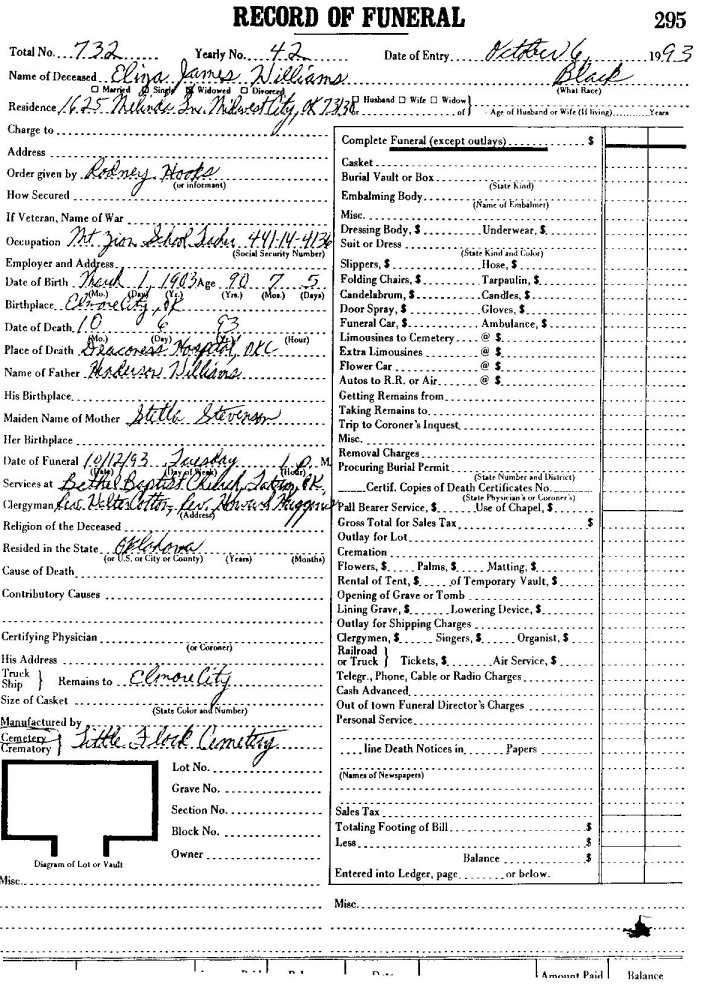 RECORD OF FUNERAL 295
Total No. 732 Yearly No. 42 Date of Entry October 6, 1993
Name of Deceased Eliza James Williams Black
☐ Married ☒ Single ☒ Widowed ☐ Divorced (What Race)
Residence 1625 Melinda Ln. Midwest City, OK 73130 ☐ Husband ☐ Wife ☐ Widow of Age of Husband or Wife (If living) Years
Charge to
Address
Order given by Rodney Hooks
(or informant)
How Secured
If Veteran, Name of War
Occupation Mt Zion School 441-14-4136
(Social Security Number)
Employer and Address
Date of Birth March 1, 1903 Age 90 7 5
(Mo.) (Day) (Yr.) (Yrs.) (Mos.) (Days)
Birthplace Elmore City, OK
Date of Death 10 6 93
(Mo.) (Day) (Yr.) (Hour)
Place of Death Deaconess Hospital, OKC
Name of Father Henderson Williams
His Birthplace
Maiden Name of Mother Stella Stevenson
Her Birthplace
Date of Funeral 10/12/93 Tuesday 1 P. M.
(Date) (Day of Week) (Hour)
Services at Bethel Baptist Church, OK.
Clergyman Rev. Walter Cotton, Rev. Howard
(Address)
Religion of the Deceased
Resided in the State Oklahoma
(or U.S. or City or County) (Years) (Months)
Cause of Death
Contributory Causes
Certifying Physician
(or Coroner)
His Address
Truck
Ship } Remains to Elmore City
Size of Casket
(State Color and Number)
Manufactured by
Cemetery
Crematory } Little Flock Cemetery
Lot No.
Grave No.
Section No.
Block No.
Owner
Diagram of Lot or Vault
Misc.
Complete Funeral (except outlays) $
Casket
Burial Vault or Box
(State Kind)
Embalming Body
(Name of Embalmer)
Misc.
Dressing Body, $ Underwear, $
Suit or Dress
(State Kind and Color)
Slippers, $ Hose, $
Folding Chairs, $ Tarpaulin, $
Candelabrum, $ Candles, $
Door Spray, $ Gloves, $
Funeral Car, $ Ambulance, $
Limousines to Cemetery @ $
Extra Limousines @ $
Flower Car @ $
Autos to R.R. or Air @ $
Getting Remains from
Taking Remains to
Trip to Coroner's Inquest
Misc.
Removal Charges
Procuring Burial Permit
(State Number and District)
Certif. Copies of Death Certificates No.
(State Physician's or Coroner's)
Pall Bearer Service, $ Use of Chapel, $
Gross Total for Sales Tax $
Outlay for Lot
Cremation
Flowers, $ Palms, $ Matting, $
Rental of Tent, $ of Temporary Vault, $
Opening of Grave or Tomb
Lining Grave, $ Lowering Device, $
Outlay for Shipping Charges
Clergymen, $ Singers, $ Organist, $
Railroad
or Truck } Tickets, $ Air Service, $
Telegr., Phone, Cable or Radio Charges
Cash Advanced
Out of town Funeral Director's Charges
Personal Service
line Death Notices in Papers
(Names of Newspapers)
Sales Tax
Totaling Footing of Bill $
Less $
Balance $
Entered into Ledger, page or below.
Misc.
Date Amount Paid Balance